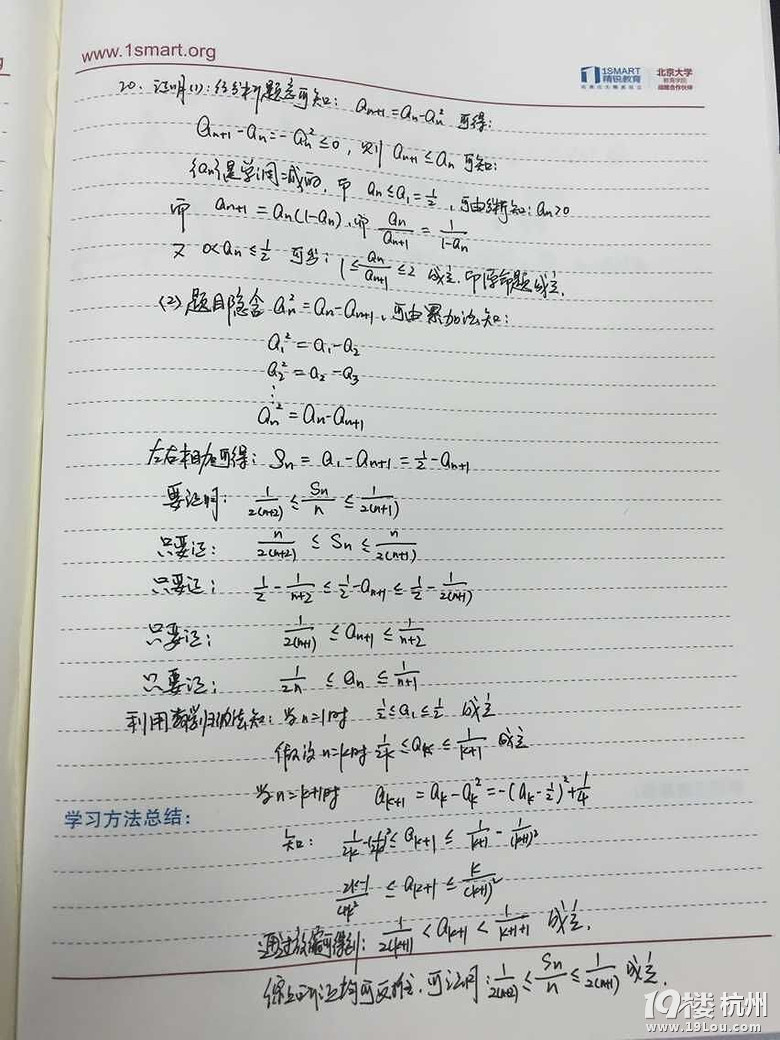 www.1smart.org
1SMART 精锐教育 北京大学 教育学院 战略合作伙伴
20. 证明(1): 经分析题意可知: aₙ₊₁=aₙ-aₙ² 可得:
aₙ₊₁-aₙ=-aₙ²≤0, 则 aₙ₊₁≤aₙ 可知:
{aₙ}是单调递减的, 即 aₙ≤a₁=1/2, 可由分析知: aₙ>0
即 aₙ₊₁=aₙ(1-aₙ), 即 aₙ/aₙ₊₁ = 1/(1-aₙ)
又 0<aₙ≤1/2 可知: 1≤aₙ/aₙ₊₁≤2 成立. 即原命题成立.
(2) 题目隐含 aₙ²=aₙ-aₙ₊₁, 可由累加法知:
a₁²=a₁-a₂
a₂²=a₂-a₃
⋮
aₙ²=aₙ-aₙ₊₁
左右相加可得: Sₙ=a₁-aₙ₊₁=1/2-aₙ₊₁
要证明: 1/2(n+2) ≤ Sₙ/n ≤ 1/2(n+1)
只要证: n/2(n+2) ≤ Sₙ ≤ n/2(n+1)
只要证: 1/2 - 1/(n+2) ≤ 1/2-aₙ₊₁ ≤ 1/2 - 1/2(n+1)
只要证: 1/2(n+1) ≤ aₙ₊₁ ≤ 1/(n+2)
只要证: 1/2n ≤ aₙ ≤ 1/(n+1)
利用数学归纳法知: 当n=1时 1/2≤a₁≤1/2 成立
假设n=k时 1/2k ≤ aₖ ≤ 1/(k+1) 成立
当n=k+1时 aₖ₊₁=aₖ-aₖ²=-(aₖ-1/2)²+1/4
学习方法总结:
知: 1/2k-(1/2k)² ≤ aₖ₊₁ ≤ 1/(k+1) - 1/(k+1)²
(2k-1)/4k² ≤ aₖ₊₁ ≤ k/(k+1)²
通过放缩可得到: 1/2(k+1) < aₖ₊₁ < 1/(k+1+1) 成立.
综上所证均可反推, 可证明: 1/2(n+2) ≤ Sₙ/n ≤ 1/2(n+1) 成立.
19楼 杭州
www.19Lou.com